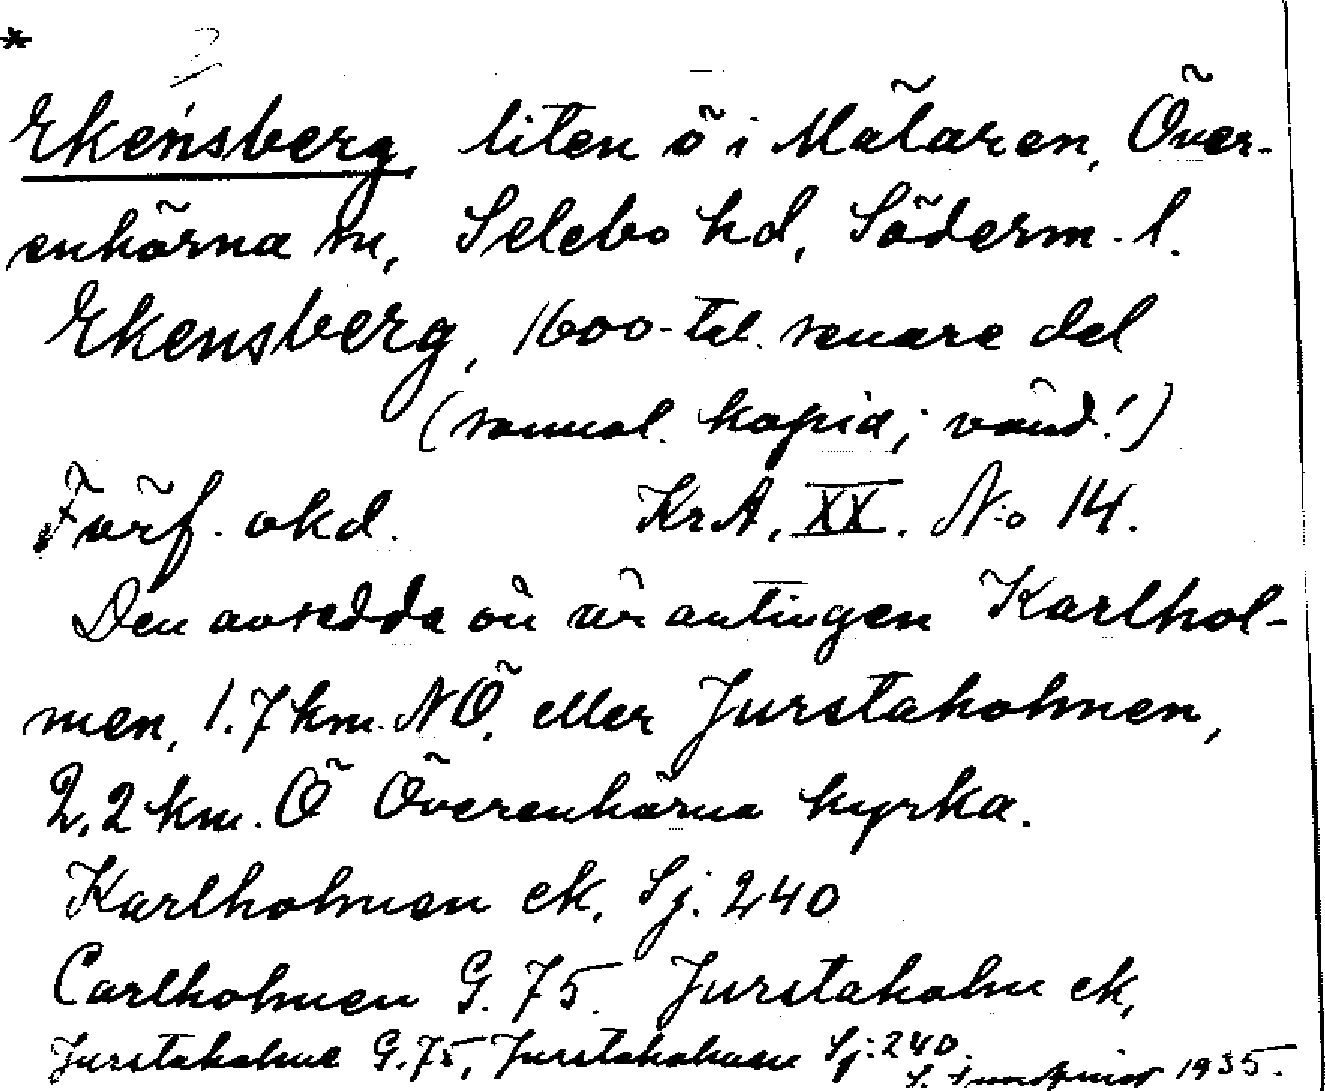 *
Ekensberg, liten ö i Mälaren, Över-
enhörna sn, Selebo hd, Söderm. l.
Ekensberg, 1600-tal. senare del
(sannol. kopia; vänd!)
Förf. okd. KrA. XX. No 14.
Den avsedda ön är antingen Karlhol-
men, 1.7 km. NÖ, eller Jurstaholmen,
2,2 km. Ö Överenhörna kyrka.
Karlholmen ek, Sj. 240
Carlholmen G. 75. Jurstaholm ek,
Jurstaholme G. 75, Jurstaholmen Sj: 240.
1935.